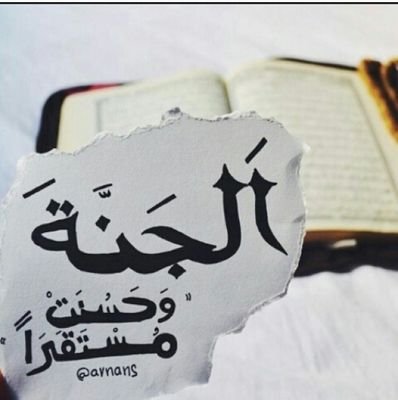 اَلجَنَّةَ
"وَحَسُنَتْ
مُسْتَقَرَاً"
@arnans